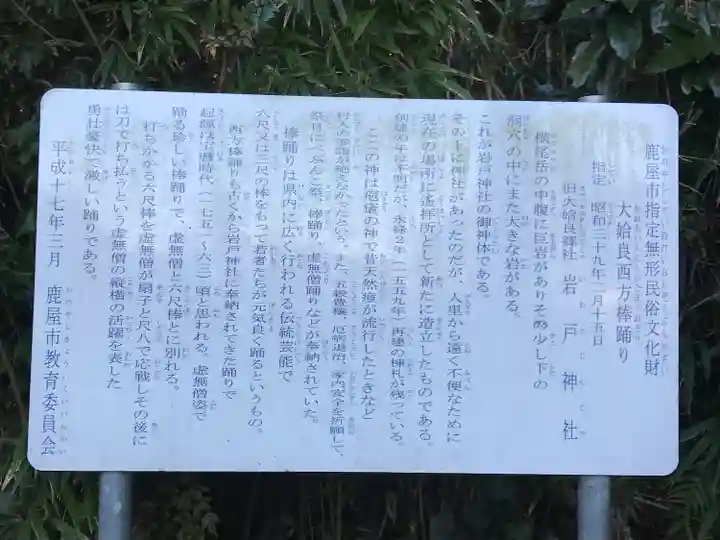 鹿屋市指定無形民俗文化財
大姶良西方棒踊り
指定 昭和三十九年二月十五日
旧大姶良郷社 岩戸神社
横尾岳の中腹に巨岩がありその少し下の
洞穴の中にまた大きな岩がある。
これが岩戸神社の御神体である。
その下に神社があったのだが、人里から遠く不便なために
現在の場所に遙拝所として新たに造立したものである。
創建の年は不明だが、永禄2年(一五五九年)再建の棟札が残っている。
ここの神は疱瘡の神で昔天然痘が流行したときなど
村人の参詣が絶えなかったという。また、五穀豊穣、厄病退治、家内安全を祈願して、
祭日にはべぶんこ祭、棒踊り、虚無僧踊りなどが奉納されていた。
棒踊りは県内に広く行われる伝統芸能で
六尺又は三尺の棒をもって若者たちが元気良く踊るというもの。
西方棒踊りも古くから岩戸神社に奉納されてきた踊りで
起源は宝暦時代(一七五一~六三)頃と思われる。虚無僧姿で
踊る珍しい棒踊りで、虚無僧と六尺棒とに別れる。
打ちかかる六尺棒を虚無僧が扇子と尺八で応戦しその後に
は刀で打ち払うという虚無僧の縦横の活躍を表した
勇壮豪快で激しい踊りである。
平成十七年三月 鹿屋市教育委員会